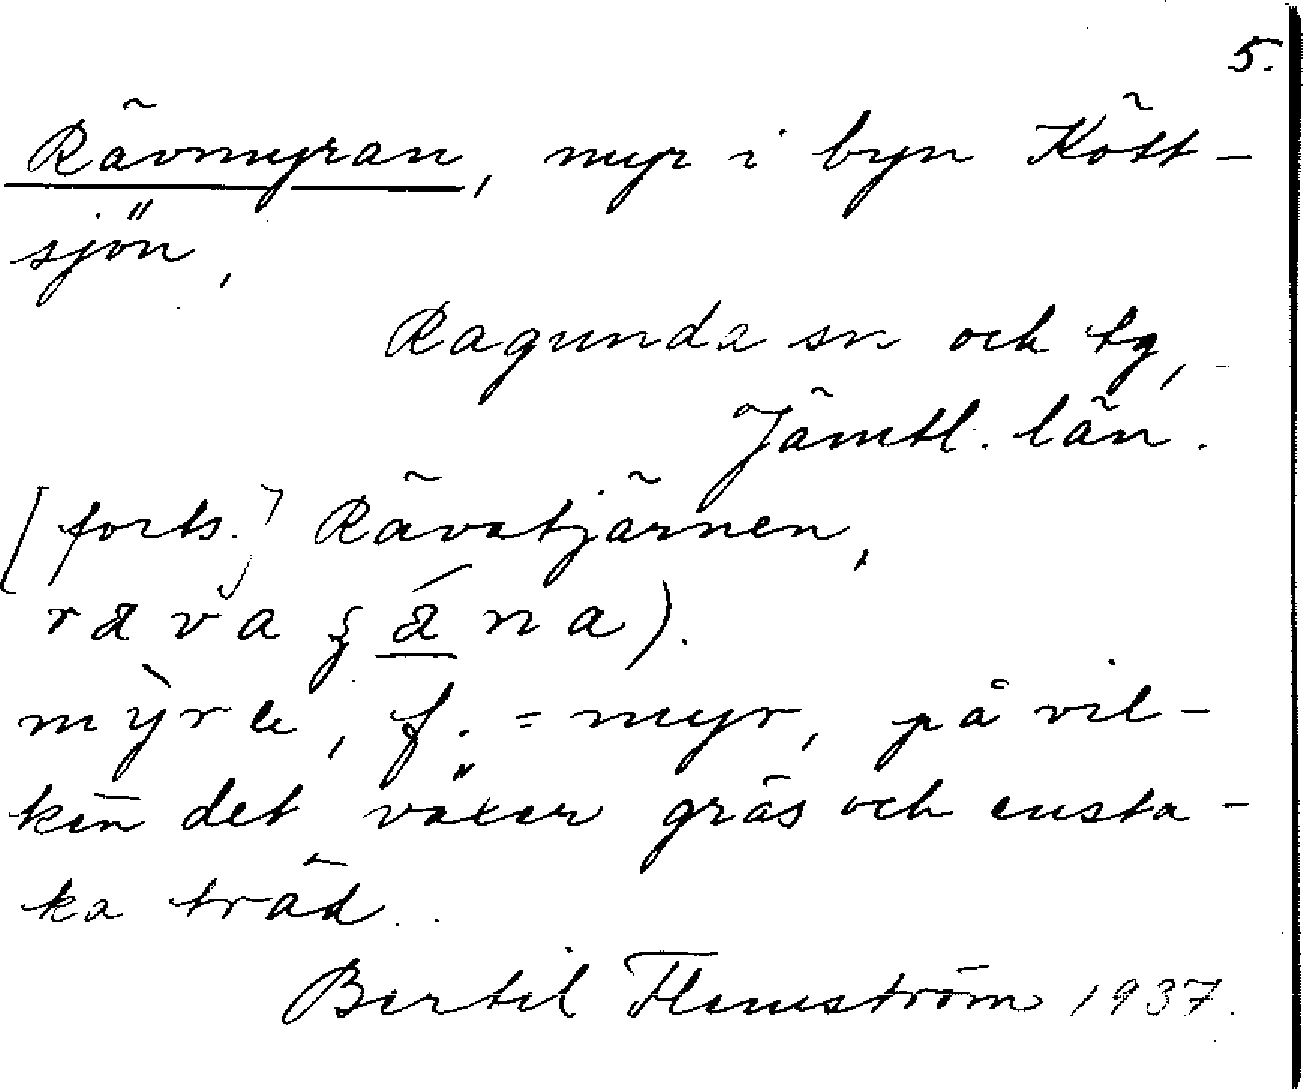 5.
Rävmyran, myr i byn Kött-
sjön,
Ragunda sn och tg,
Jämtl. län.
[forts.] Rävatjärnen,
räva ʒä́na).
mỳrɐ, f. = myr, på vil-
ken det växer gräs och ensta-
ka träd.
Bertil Flemström 1937.